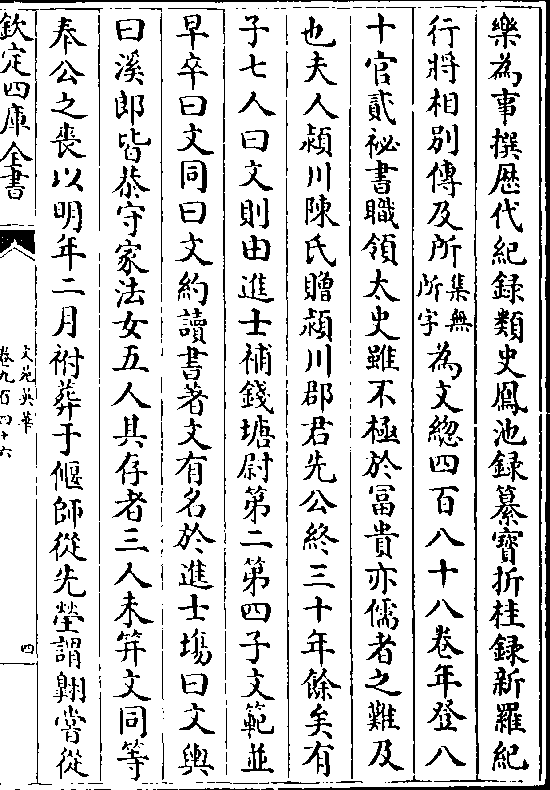 樂為事撰歴代紀録類史鳳池録纂寳折桂録新羅紀
行將相别傳及所集無所字為文緫四百八十八卷年登八
十官貳祕書職領太史雖不極於冨貴亦儒者之難及
也夫人潁川陳氏贈潁川郡君先公終三十年餘矣有
子七人曰文則由進士補錢塘尉第二第四子文範並
早卒曰文同曰文約讀書著文有名於進士塲曰文輿
曰溪郎皆恭守家法女五人具存者三人未筓文同等
奉公之喪以明年二月祔葬于偃師從先塋謂翺嘗從
欽定四庫全書
文苑英華
卷九百四十六
四